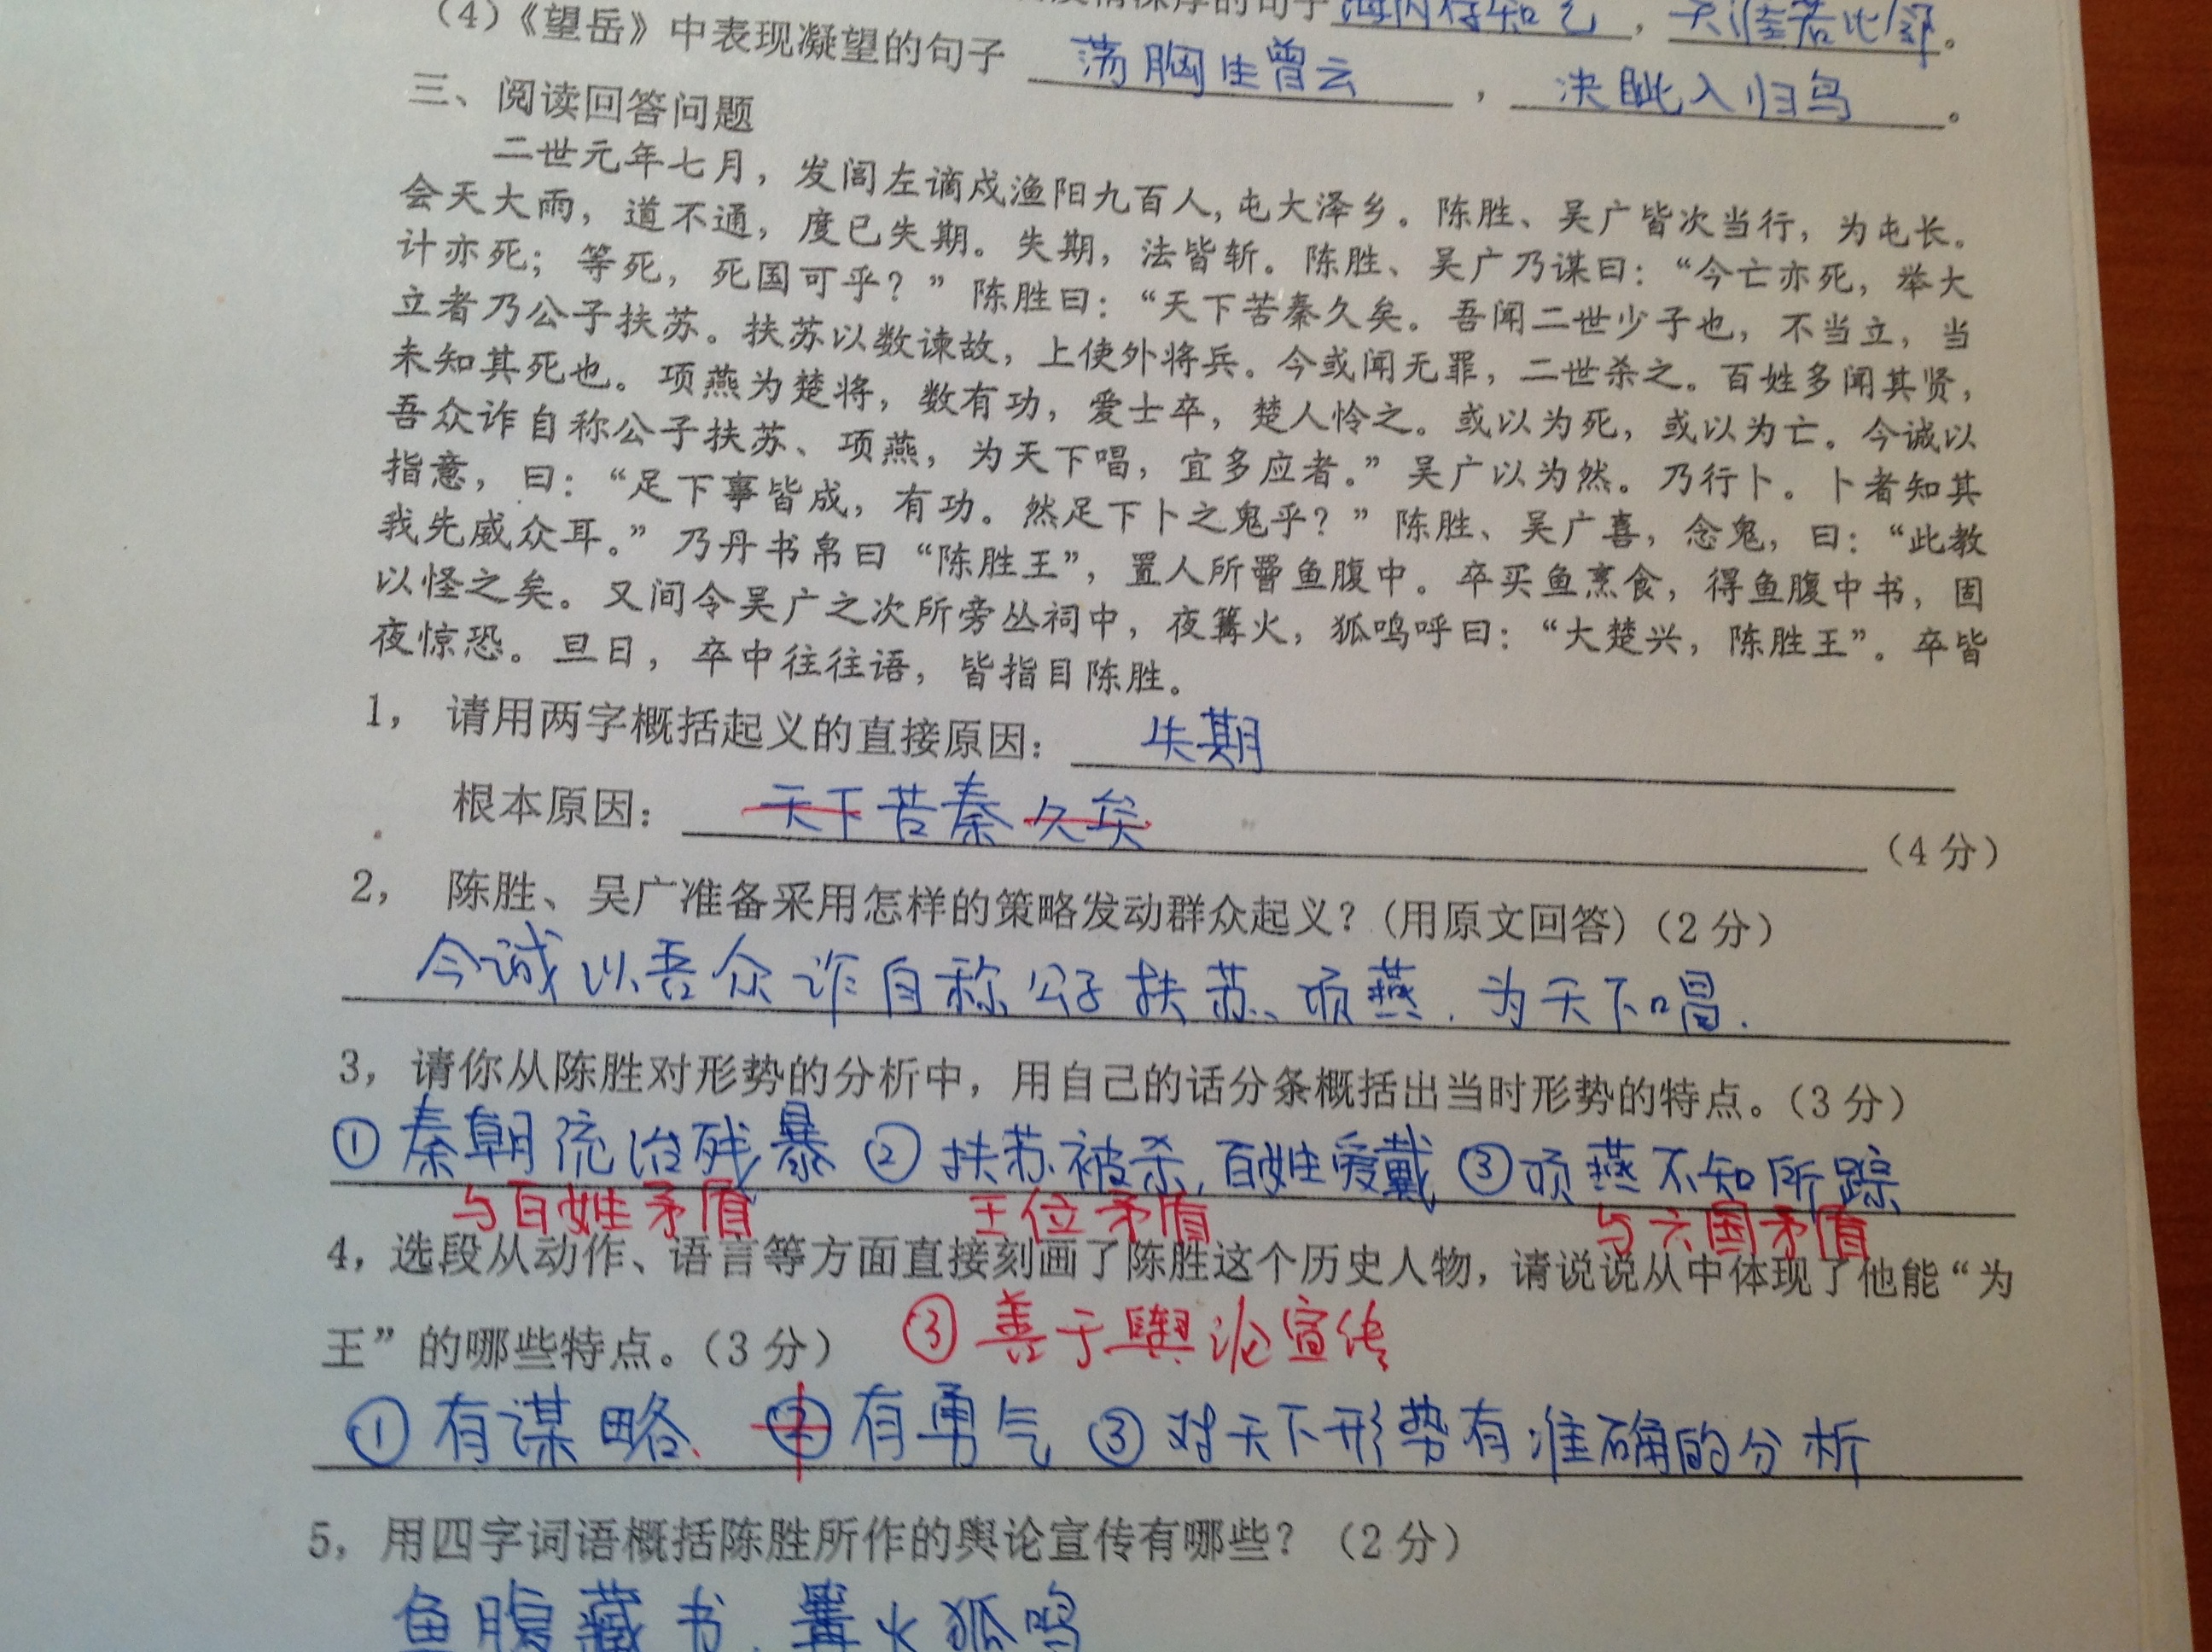 海内存知己，天涯若比邻。
(4)《望岳》中表现凝望的句子 荡胸生曾云，决眦入归鸟。
三、阅读回答问题
二世元年七月，发闾左谪戍渔阳九百人，屯大泽乡。陈胜、吴广皆次当行，为屯长。
会天大雨，道不通，度已失期。失期，法皆斩。陈胜、吴广乃谋曰：“今亡亦死，举大
计亦死；等死，死国可乎？”陈胜曰：“天下苦秦久矣。吾闻二世少子也，不当立，当
立者乃公子扶苏。扶苏以数谏故，上使外将兵。今或闻无罪，二世杀之。百姓多闻其贤，
未知其死也。项燕为楚将，数有功，爱士卒，楚人怜之。或以为死，或以为亡。今诚以
吾众诈自称公子扶苏、项燕，为天下唱，宜多应者。”吴广以为然。乃行卜。卜者知其
指意，曰：“足下事皆成，有功。然足下卜之鬼乎？”陈胜、吴广喜，念鬼，曰：“此教
我先威众耳。”乃丹书帛曰“陈胜王”，置人所罾鱼腹中。卒买鱼烹食，得鱼腹中书，固
以怪之矣。又间令吴广之次所旁丛祠中，夜篝火，狐鸣呼曰：“大楚兴，陈胜王”。卒皆
夜惊恐。旦日，卒中往往语，皆指目陈胜。
1，请用两字概括起义的直接原因： 失期
根本原因： 天下苦秦久矣 (4分)
2，陈胜、吴广准备采用怎样的策略发动群众起义？(用原文回答)(2分)
今诚以吾众诈自称公子扶苏、项燕，为天下唱.
3，请你从陈胜对形势的分析中，用自己的话分条概括出当时形势的特点。(3分)
①秦朝统治残暴 ②扶苏被杀,百姓爱戴 ③项燕不知所踪
与百姓矛盾 王位矛盾 与六国矛盾
4，选段从动作、语言等方面直接刻画了陈胜这个历史人物，请说说从中体现了他能“为
王”的哪些特点。(3分) ③善于舆论宣传
①有谋略、②有勇气 ③对天下形势有准确的分析
5，用四字词语概括陈胜所作的舆论宣传有哪些？(2分)
鱼腹藏书、篝火狐鸣